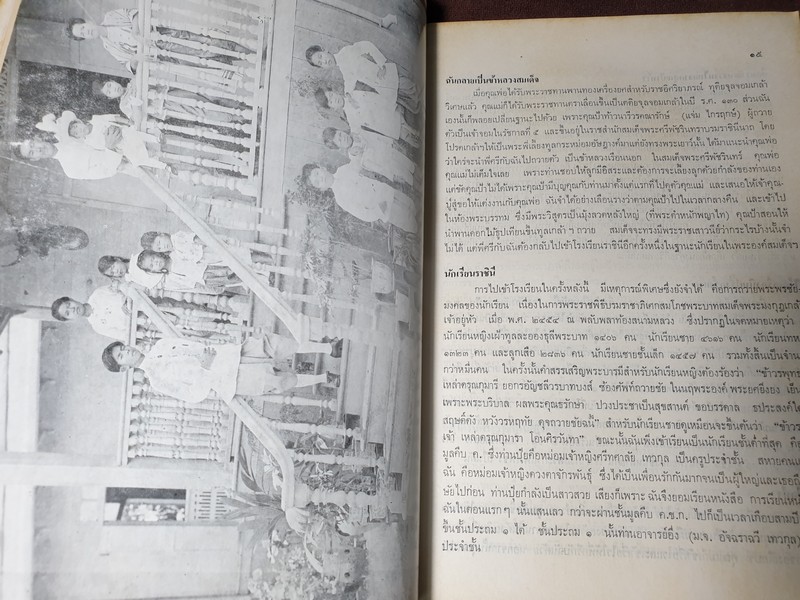 ๑๕
ฉันกลายเป็นข้าหลวงสมเด็จ
เมื่อคุณพ่อได้รับพระราชทานพานทองเครื่องยศสำหรับราชอิศริยาภรณ์ ทุติยจุลจอมเกล้า
วิเศษแล้ว คุณแม่ก็ได้รับพระราชทานตราเลื่อนขึ้นเป็นตติยจุลจอมเกล้าในปี ร.ศ. ๑๓๐ ส่วนฉัน
เองนั้นก็พลอยเปลี่ยนฐานะไปด้วย เพราะคุณป้าท้าววนิดา (แจ่ม ไกรฤกษ์) ผู้ถวาย
ตัวเป็นเจ้าจอมในรัชกาลที่ ๕ และขึ้นอยู่ในราชสำนักสมเด็จพระศรีพัชรินทราบรมราชินีนาถ โดย
โปรดเกล้าฯให้เป็นพระพี่เลี้ยงทูลกระหม่อมอัษฎางค์มาแต่ยังทรงพระเยาว์นั้น ได้มาแนะนำคุณพ่อ
ว่าใคร่จะนำพี่ศรีกับฉันไปถวายตัว เป็นข้าหลวงเรือนนอก ในสมเด็จพระศรีพัชรินทร์ คุณพ่อ
คุณแม่ไม่เต็มใจเลย เพราะท่านชอบให้ลูกมีอิสระและต้องการจะเลี้ยงลูกด้วยกำลังของท่านเอง
แต่ขัดคุณป้าไม่ได้เพราะคุณป้ามีบุญคุณกับท่านมาตั้งแต่แรกที่ไปดูตัวคุณแม่ และเสนอให้เจ้าคุณ-
ปู่สู่ขอให้แต่งงานกับคุณพ่อ ฉันจำได้อย่างเลือนรางว่าตามคุณป้าไปในเวลากลางคืน และเข้าไป
ในห้องพระบรรทม ซึ่งมีพระวิสูตรเป็นมุ้งลวดหลังใหญ่ (ที่พระตำหนักพญาไท) คุณป้าสอนให้
นำพานดอกไม้ธูปเทียนขึ้นทูลเกล้า ฯ ถวาย สมเด็จจะทรงมีพระราชเสาวนีย์ว่ากระไรบ้างนั้นจำ
ไม่ได้ แต่พี่ศรีกับฉันต้องกลับไปเข้าโรงเรียนราชินีอีกครั้งหนึ่งในฐานะนักเรียนในพระองค์สมเด็จฯ
นักเรียนราชินี
การไปเข้าโรงเรียนในครั้งหลังนี้ มีเหตุการณ์พิเศษซึ่งยังจำได้ คือการถวายพระพรชัย
มงคลของนักเรียน เนื่องในการพระราชพิธีบรมราชาภิเศกสมโภชพระบาทสมเด็จพระมงกุฎเกล้า
เจ้าอยู่หัว เมื่อ พ.ศ. ๒๔๕๔ ณ พลับพลาท้องสนามหลวง ซึ่งปรากฏในจดหมายเหตุว่า
นักเรียนหญิงเฝ้าทูลละอองธุลีพระบาท ๑๔๐๖ คน นักเรียนชาย ๔๖๑๖ คน นักเรียนทห
๑๓๒๓ คน และลูกเสือ ๒๔๓๖ คน นักเรียนชายชั้นเล็ก ๑๔๕๗ คน รวมทั้งสิ้นเป็นจำน
กว่าหมื่นคน ในครั้งนั้นคำสรรเสริญพระบารมีสำหรับนักเรียนหญิงต้องร้องว่า “ข้าวรพุทธ
เหล่าดรุณกุมารี ยอกรอัญชลีวรบาทบงส์ ซ้องศัพท์ถวายชัย ในนฤพระองค์ พระยศยิ่งยง เย็น
เพราะพระบริบาล ผลพระคุณธรักษา ปวงประชาเป็นสุขสานต์ ขอบรรดาล ธประสงค์ใด
สฤษดิ์ดัง หวังวรหฤทัย ดุจถวายชัยฉนี้” สำหรับนักเรียนชายดูเหมือนจะขึ้นต้นว่า “ข้าวร
เจ้า เหล่าดรุณกุมารา โอนศิรวันทา” ขณะนั้นฉันเพิ่งเข้าเรียนเป็นนักเรียนชั้นต่ำที่สุด คือ
มูลคืบ ค. ซึ่งท่านปุ้ยคือหม่อมเจ้าหญิงศรีทศาลัย เทวกุล เป็นครูประจำชั้น สหายคนแ
ฉัน คือหม่อมเจ้าหญิงดวงตาจักรพันธุ์ ซึ่งได้เป็นเพื่อนรักกันมาจนเป็นผู้ใหญ่และเธอถึ
ษัยไปก่อน ท่านปุ้ยกำลังเป็นสาวสวย เสียงก็เพราะ ฉันจึงยอมเรียนหนังสือ การเรียนหนั
ฉันในตอนแรกๆ นั้นแสนเลว กว่าจะผ่านชั้นมูลคืบ ค.ข.ก. ไปก็เป็นเวลาเกือบสามปี
ขึ้นชั้นประถม ๑ ได้ ชั้นประถม ๑ นั้นท่านอาจารย์ยิ่ง (ม.จ. อัจฉราฉวี เทวกุล)
ประจำชั้น